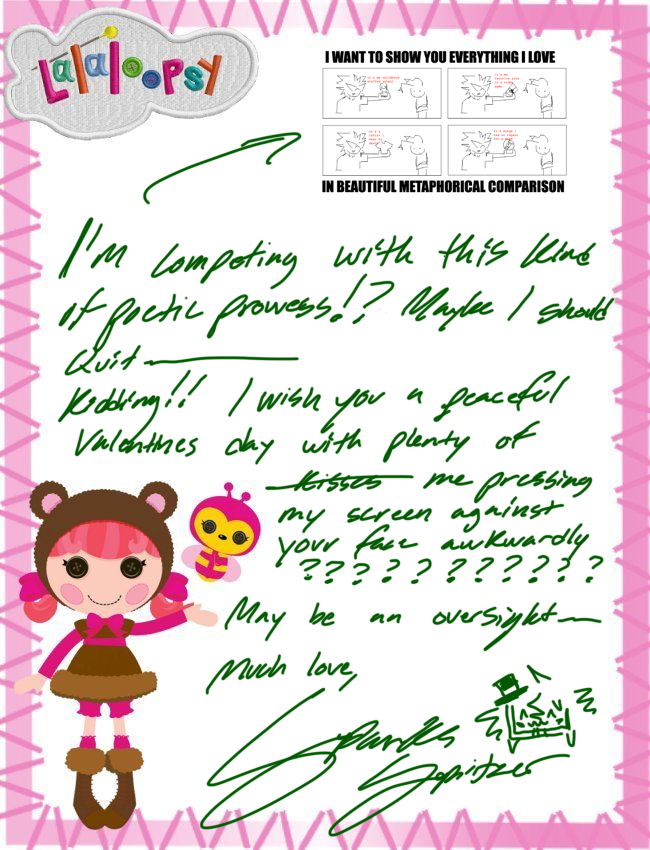 Lalaloopsy
I WANT TO SHOW YOU EVERYTHING I LOVE
IN BEAUTIFUL METAPHORICAL COMPARISON
I'm competing with this kind
of poetic prowess!? Maybe I should
quit
Kidding!! I wish you a peaceful
Valentines day with plenty of
kisses me pressing
my screen against
your face awkwardly
???????????
May be an oversight
Much love,
Sparks
Spitzer